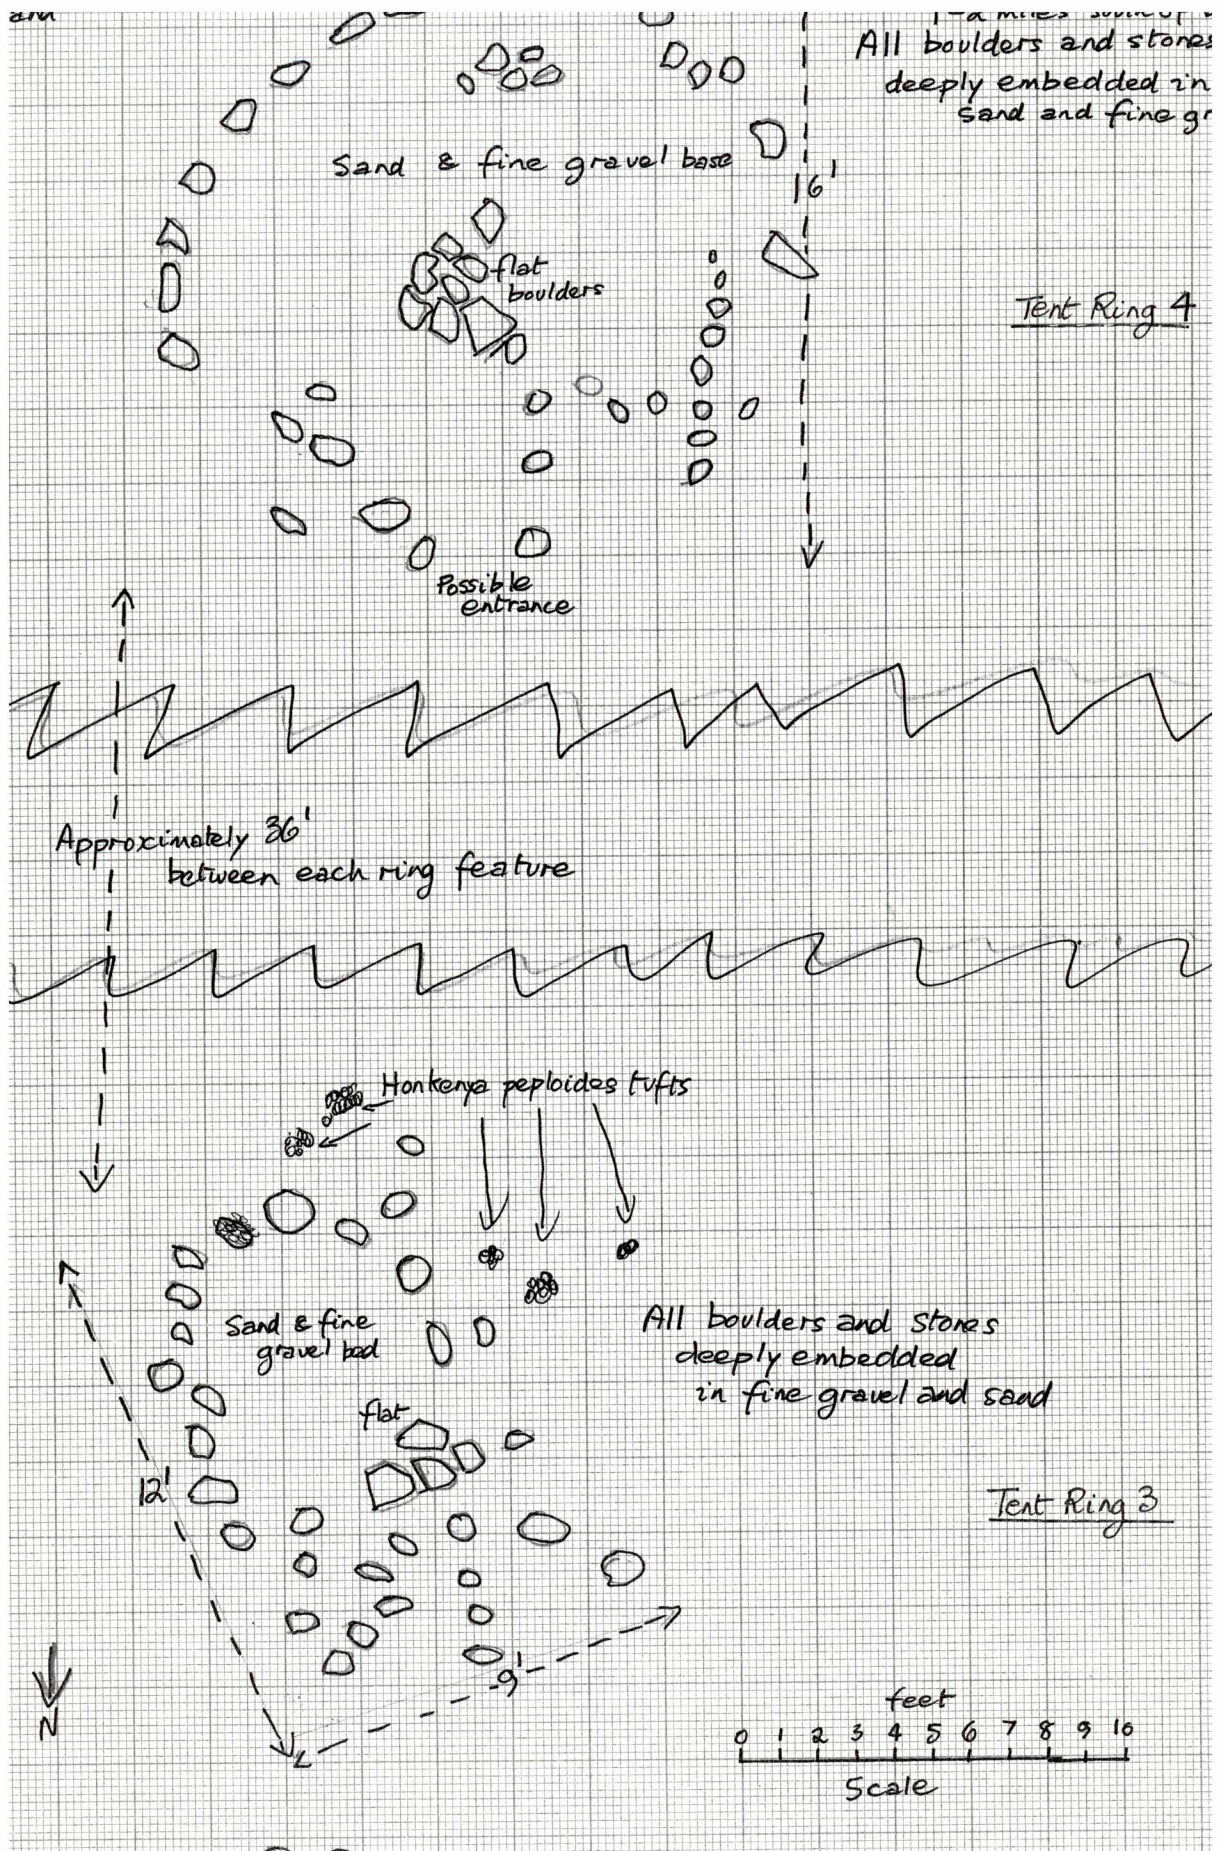 and
1-2 miles south of
All boulders and stones
deeply embedded in
sand and fine gr
Sand & fine gravel base
16'
flat
boulders
Tent Ring 4
Possible
entrance
Approximately 36'
between each ring feature
Honkenya peploides tufts
Sand & fine
gravel bed
All boulders and stones
deeply embedded
in fine gravel and sand
flat
12'
Tent Ring 3
9'
N
feet
0 1 2 3 4 5 6 7 8 9 10
Scale